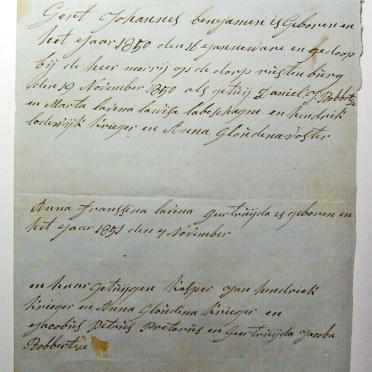 Gert Johannes benejamen is Geboren en
het ejaar 1850 den 16 ejanneware en gedoop
bij de heer morrij op de dorp rustenburg
den 19 November 1850 als getuij Daniel J Bobbertse
en Marta lavina lavisa labeschagne en hendrik
lodewijk Krieger en Anna Glondena voster
Anna franssina lavina Geertruijda is geboren en
het ejaar 1851 den 4 November
en haar getuijgen Kasper Jan hendriek
Krieger en Anna Glondina Krieger en
Jacobus Petrus Pretorius en Geertruijda Jacoba
Bobbertse